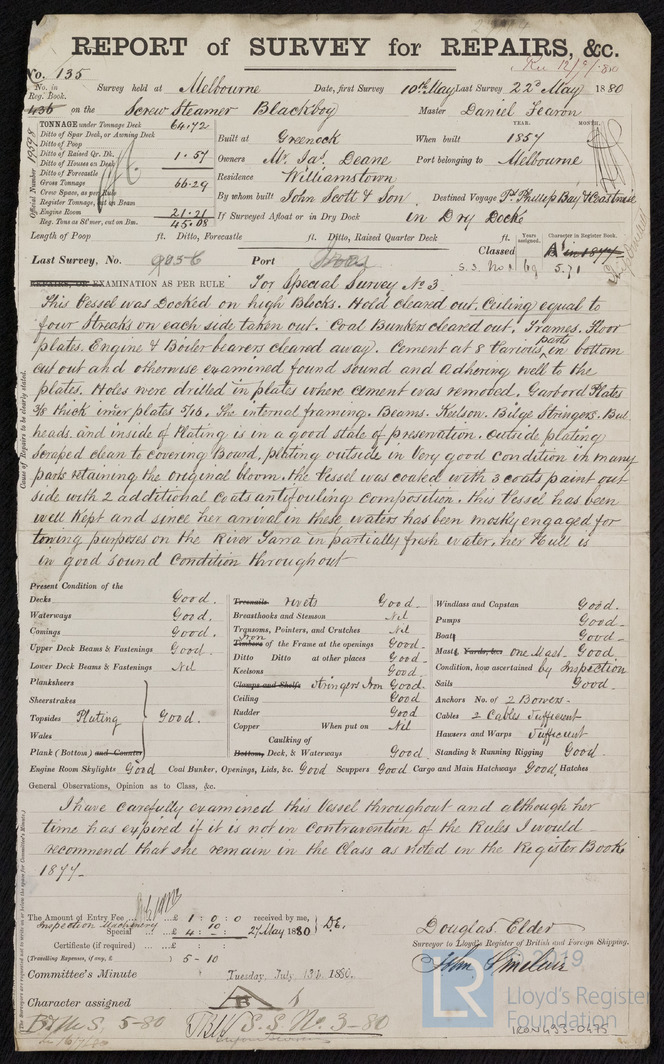 REPORT of SURVEY for REPAIRS, &c.
No. 135
No. in Reg. Book. Survey held at Melbourne Date, first Survey 10th May Last Survey 22d May 1880
436 on the Screw Steamer Blackboy Master Daniel Fearon
TONNAGE under Tonnage Deck 64.72
Ditto of Spar Deck, or Awning Deck
Ditto of Poop
Ditto of Raised Qr. Dk. 1.57
Ditto of Houses on Deck
Ditto of Forecastle
Gross Tonnage 66.29
Crew Space, as per Rule
Register Tonnage, cut on Beam
Engine Room 21.21
Reg. Tons as St'mer, cut on Bm. 45.08
Official Number
Built at Greenock When built YEAR. 1857 MONTH.
Owners Mr. Jas. Deane Port belonging to Melbourne
Residence Williamstown
By whom built John Scott & Son Destined Voyage Pt. Phillip Bay & Coastwise
If Surveyed Afloat or in Dry Dock in Dry Dock
Length of Poop ft. Ditto, Forecastle ft. Ditto, Raised Quarter Deck ft. Years assigned. Character in Register Book.
Classed A1 in 1877
Last Survey, No. Port
S.S. No 1 69 5.71
REPAIRS, OR EXAMINATION AS PER RULE For Special Survey No 3
Cause of Repairs to be clearly stated.
This Vessel was Docked on high Blocks. Hold cleared out. Ceiling equal to
four Streaks on each side taken out. Coal Bunkers cleared out, Frames. Floor
plates. Engine & Boiler bearers cleared away. Cement at 8 Various parts in bottom
cut out and otherwise examined found sound and adhering well to the
plates. Holes were drilled in plates where cement was removed, Garboard Plates
3/8 thick inner plates 5/16. The internal framing. Beams. Keilson. Bilge Stringers. Bul
heads. and inside of Plating is in a good state of preservation. outside plating
scraped clean to covering Board, plating outside in Very good condition in many
parts retaining the original bloom. the Vessel was coated with 3 coats paint out
side with 2 additional coats antifouling composition. This Vessel has been
well kept and since her arrival in these waters has been mostly engaged for
towing purposes on the River Yarra in partially fresh water, her Hull is
in good sound condition throughout
Present Condition of the
Decks Good.
Waterways Good.
Comings Good.
Upper Deck Beams & Fastenings Good.
Lower Deck Beams & Fastenings Nil
Planksheers
Sheerstrakes
Topsides Plating Good.
Wales
Plank (Bottom) and Counter
Treenails rivets Good
Breasthooks and Stemson Nil
Transoms, Pointers, and Crutches Nil
Timbers Iron of the Frame at the openings Good
Ditto Ditto at other places Good
Keelsons Good
Clamps and Shelfs Stringers Iron Good
Ceiling Good
Rudder Good
Copper When put on Nil
Caulking of
Bottom, Deck, & Waterways Good
Windlass and Capstan Good.
Pumps Good
Boat Good
Mast Yards, &c. one Mast Good
Condition, how ascertained by Inspection
Sails Good
Anchors No. of 2 Bowers
Cables 2 Cables Sufficient
Hawsers and Warps Sufficient
Standing & Running Rigging Good
Engine Room Skylights Good Coal Bunker, Openings, Lids, &c. Good Scuppers Good Cargo and Main Hatchways Good, Hatches
General Observations, Opinion as to Class, &c.
I have carefully examined this Vessel throughout and although her
time has expired if it is not in contravention of the Rules I would
recommend that she remain in the Class as noted in the Register Book
1877
The Amount of Entry Fee £ 1 : 0 : 0 received by me,
Inspection Machinery Special £ 4 : 10 27 May 1880 D.E.
Certificate (if required) £ : :
(Travelling Expenses, if any, £ ) 5 - 10
Douglas Elder
Surveyor to Lloyd's Register of British and Foreign Shipping.
John Sinclair
Committee's Minute Tuesday, July 13th, 1880.
Character assigned A 1
B&MS 5-80 S.S. No. 3-80
© 2019
LR
Lloyd's Register
Foundation
IRON433-0475